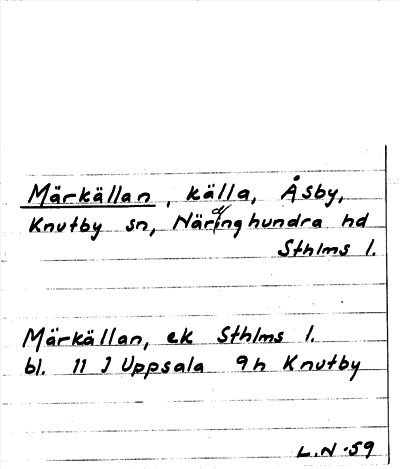 Märkällan, källa, Åsby,
Knutby sn, Närdinghundra hd
Sthlms l.
Märkällan, ek Sthlms l.
bl. 11 J Uppsala 9h Knutby
L.N -59